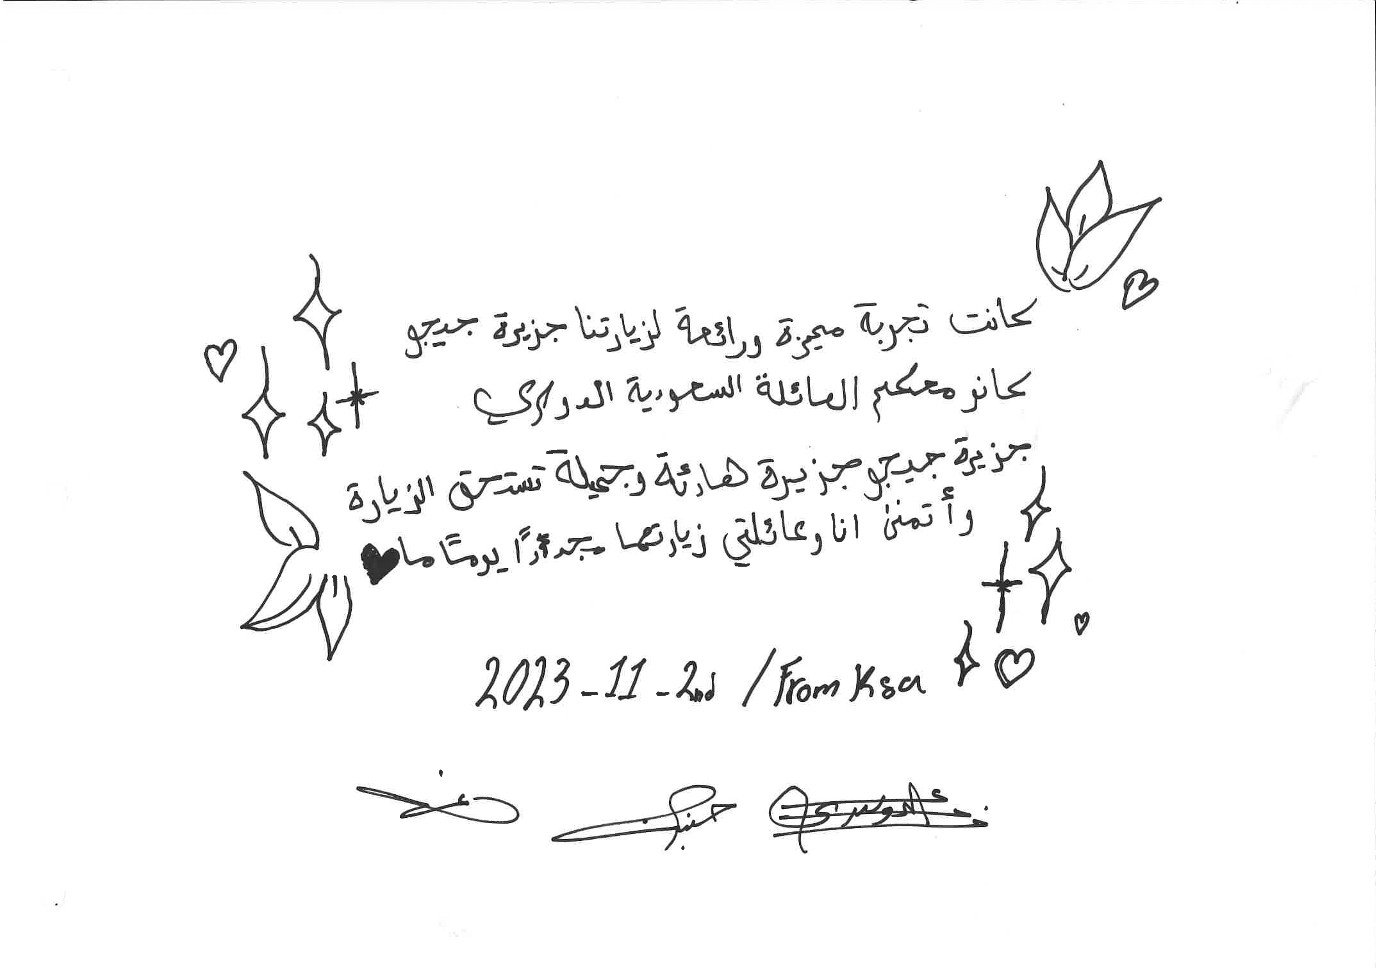 كانت تجربة مميزة ورائعة لزيارتنا جزيرة جيجو
كانو معكم العائلة السعودية الدواسري
جزيرة جيجو جزيرة هادئة وجميلة تستحق الزيارة
وأتمنى انا وعائلتي زيارتها مجددًا يومًا ما
2023-11-2nd / From Ksa